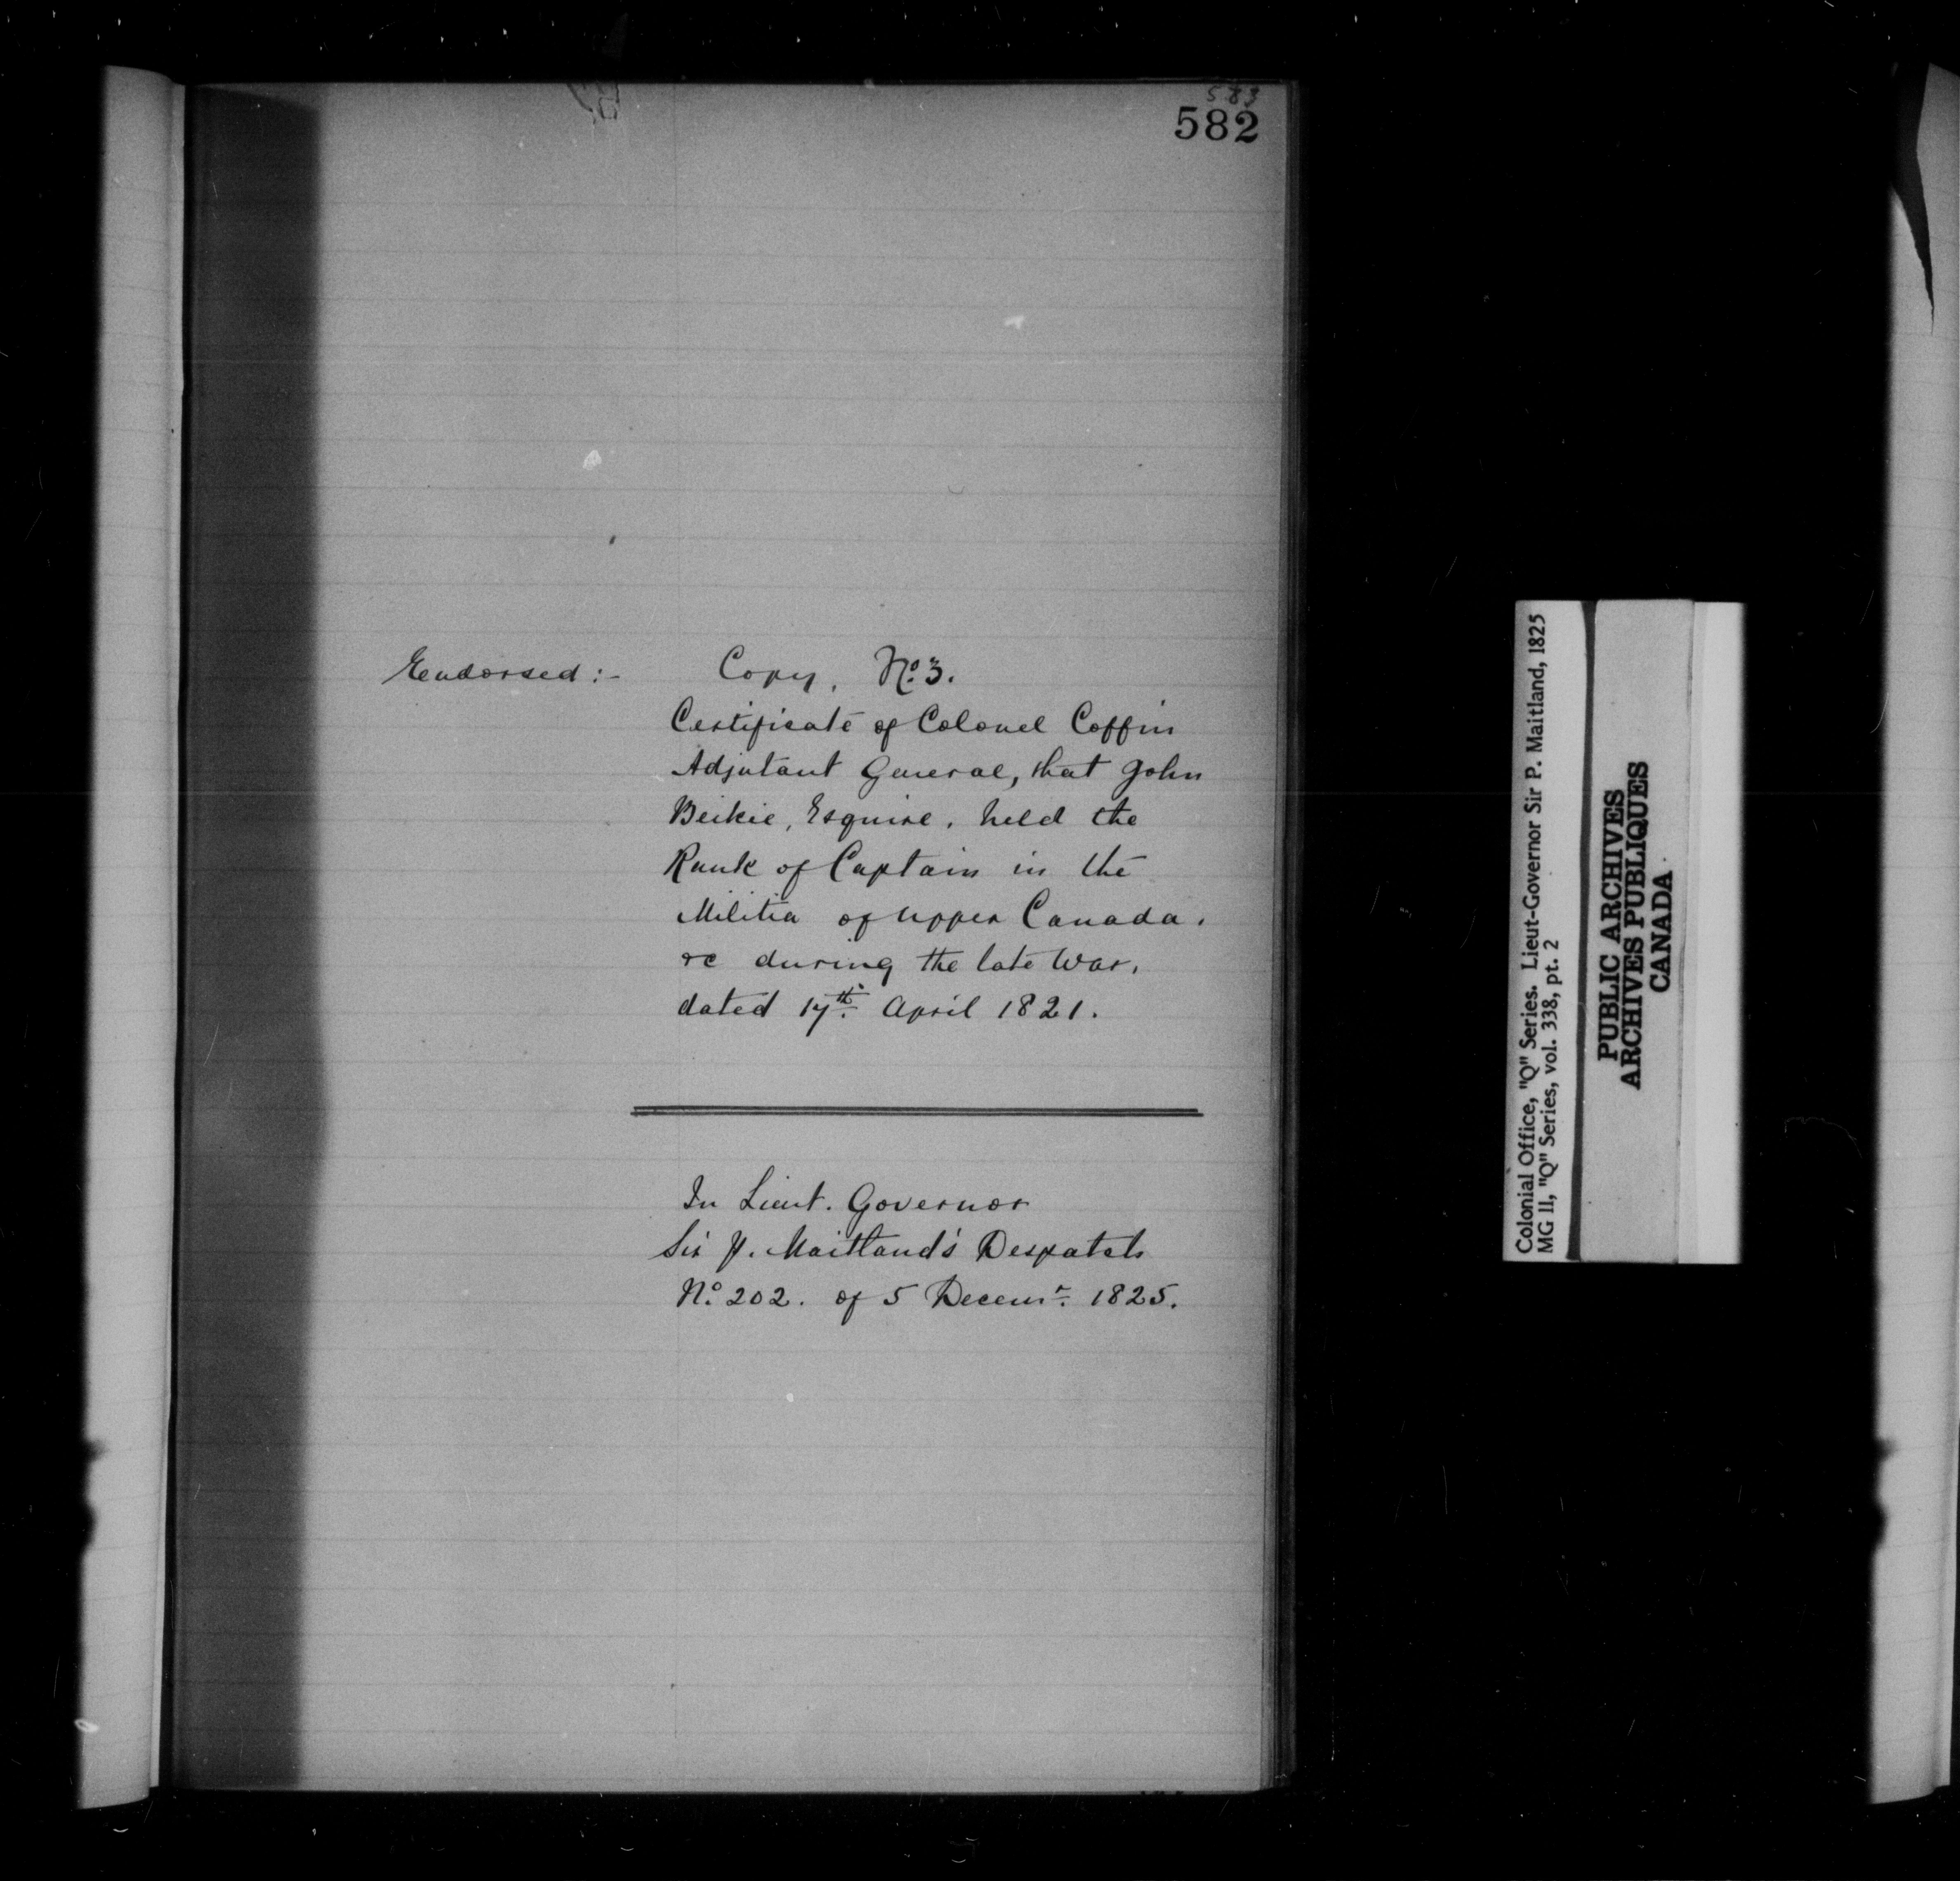 583
582
Endorsed:- Copy, No. 3.
Certificate of Colonel Coffin
Adjutant General, that John
Beikie, Esquire, held the
Rank of Captain in the
Militia of Upper Canada,
&c during the late War,
dated 17th. April 1821.
In Lieut. Governor
Sir P. Maitland's Despatch
No. 202. of 5 Decemr. 1825.
Colonial Office, "Q" Series. Lieut-Governor Sir P. Maitland, 1825
MG 11, "Q" Series, vol. 338, pt. 2
PUBLIC ARCHIVES
ARCHIVES PUBLIQUES
CANADA